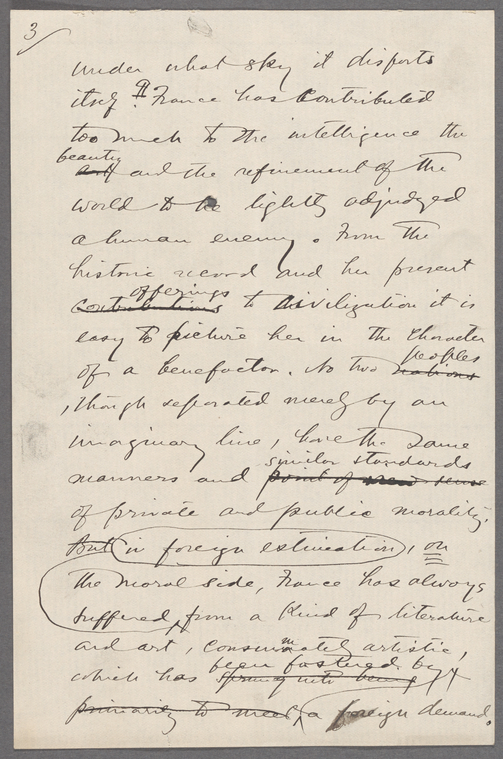 3
under what sky it disports
itself. ¶ France has contributed
too much to the intelligence the
beauty
art and the refinement of the
world to be lightly adjudged
a human enemy. From the
historic record and her present
offerings
contributions to civilization it is
easy to picture her in the character
of a benefactor. No two nations
peoples
, though separated merely by an
imaginary line, have the same
similar standards
manners and point of view sense
of private and public morality.
But in foreign estimation, on
the moral side, France has always
suffered, from a kind of literature
and art, consummately artistic,
been fostered by
which has sprung into being
primarily to meet, a foreign demand.